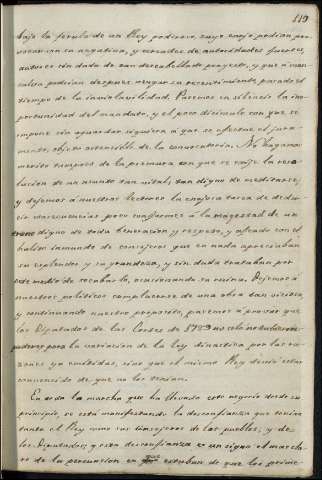 119
bajo la ferula de un Rey poderoso, cuyo enojo podian pro-
vocar con su negativa, y rodeados de autoridades fuertes,
autores sin duda de tan descabellado proyecto, y que á man-
salva podrian despues vengar su resentimiento pasado el
tiempo de la inviolavilidad. Pasemos en silencio la ino-
portunidad del mandato, y el poco disimulo con que se
impone sin aguardar siquiera á que se efectue el jura-
mento, objeto ostensible de la convocatoria. No hagamos
merito tampoco de la premura con que se exije la reso-
lucion de un asunto tan vital, tan digno de meditarse,
y dejemos á nuestros lectores la enojosa tarea de dedu-
cir consecuencias poco conformes á la magestad de un
trono digno de toda veneracion y respeto, y afeado con el
baldon inmundo de consejeros que en nada apreciaban
su esplendor y su grandeza, y sin duda trataban por
este medio de socabarlo, ocasionando su ruina. Dejemos á
nuestros politicos complacerse de una obra tan viciosa,
y continuando nuestro proposito, pasemos á provar que
los Diputados de las Cortes de 1789 no solo no tubieron
poderes para la variacion de la ley dinastica por las ra-
zones ya emitidas, sino que el mismo Rey devia estar
convencido de que no los tenian.
En toda la marcha que ha llevado este negocio desde su
principio, se está manifestando la desconfianza que tenian
tanto el Rey como sus consejeros de los pueblos, y de
los Diputados; y esta desconfianza es un signo el mas cla-
ro de la persuacion en que estaban de que los prime-